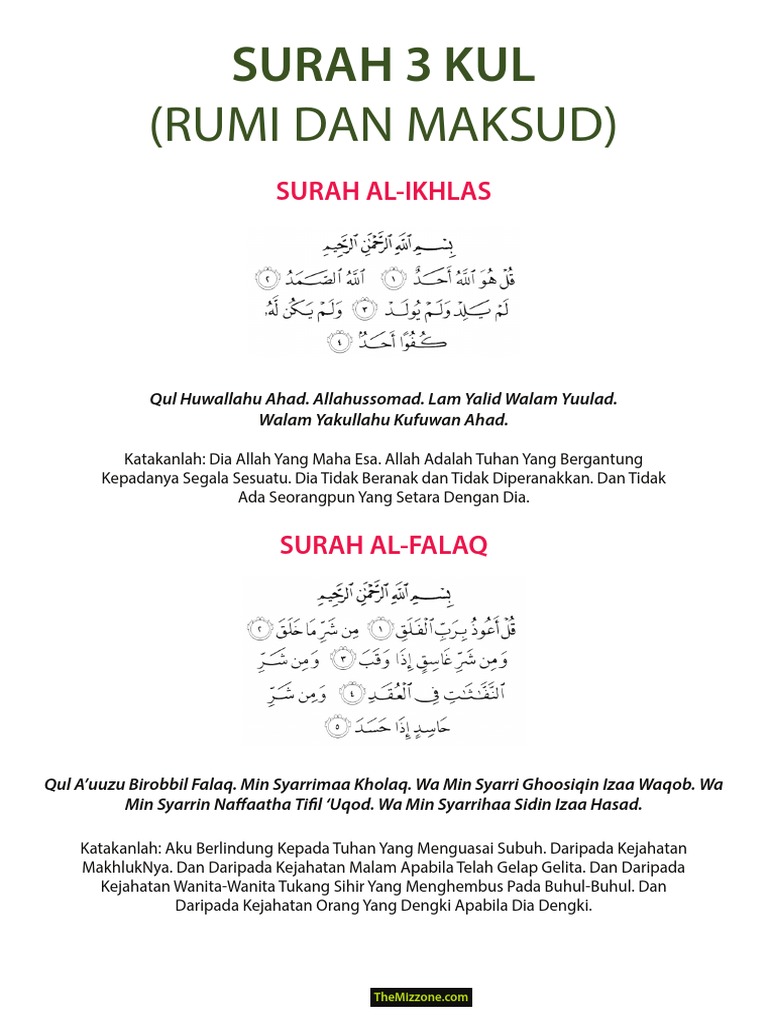 SURAH 3 KUL
(RUMI DAN MAKSUD)
SURAH AL-IKHLAS
بِسْمِ ٱللَّهِ ٱلرَّحْمَٰنِ ٱلرَّحِيمِ
قُلْ هُوَ ٱللَّهُ أَحَدٌ ١ ٱللَّهُ ٱلصَّمَدُ ٢
لَمْ يَلِدْ وَلَمْ يُولَدْ ٣ وَلَمْ يَكُن لَّهُۥ
كُفُوًا أَحَدٌۢ ٤
Qul Huwallahu Ahad. Allahussomad. Lam Yalid Walam Yuulad.
Walam Yakullahu Kufuwan Ahad.
Katakanlah: Dia Allah Yang Maha Esa. Allah Adalah Tuhan Yang Bergantung
Kepadanya Segala Sesuatu. Dia Tidak Beranak dan Tidak Diperanakkan. Dan Tidak
Ada Seorangpun Yang Setara Dengan Dia.
SURAH AL-FALAQ
بِسْمِ ٱللَّهِ ٱلرَّحْمَٰنِ ٱلرَّحِيمِ
قُلْ أَعُوذُ بِرَبِّ ٱلْفَلَقِ ١ مِن شَرِّ مَا خَلَقَ ٢
وَمِن شَرِّ غَاسِقٍ إِذَا وَقَبَ ٣ وَمِن شَرِّ
ٱلنَّفَّٰثَٰتِ فِى ٱلْعُقَدِ ٤ وَمِن شَرِّ
حَاسِدٍ إِذَا حَسَدَ ٥
Qul A’uuzu Birobbil Falaq. Min Syarrimaa Kholaq. Wa Min Syarri Ghoosiqin Izaa Waqob. Wa
Min Syarrin Naffaatha Tifil ‘Uqod. Wa Min Syarrihaa Sidin Izaa Hasad.
Katakanlah: Aku Berlindung Kepada Tuhan Yang Menguasai Subuh. Daripada Kejahatan
MakhlukNya. Dan Daripada Kejahatan Malam Apabila Telah Gelap Gelita. Dan Daripada
Kejahatan Wanita-Wanita Tukang Sihir Yang Menghembus Pada Buhul-Buhul. Dan
Daripada Kejahatan Orang Yang Dengki Apabila Dia Dengki.
TheMizzone.com